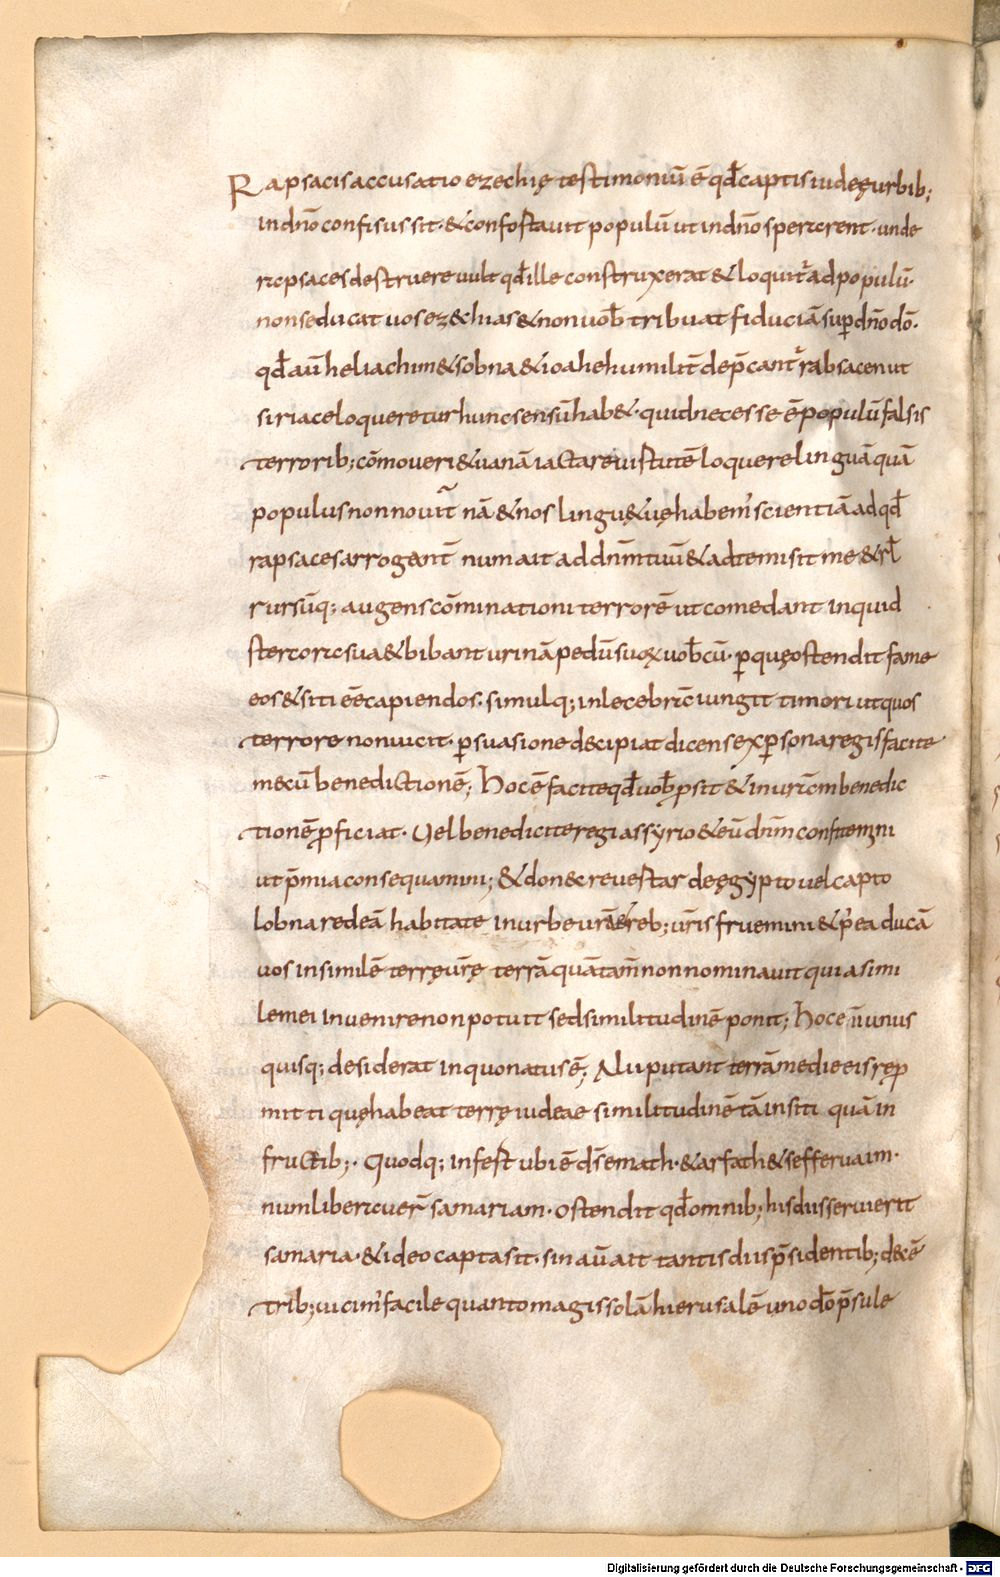 Rapsacis accusatio ezechię testimoniū ē qđ captis iudęę urbib;
in dn̄o confisus sit · & confortauit populū ut in dn̄o sperarent · unde
rapsaces destruere uult qđ ille construxerat & loquit᷑ ad populū·
non seducat uos ez&chias & non uob̄ tribuat fiduciā sup̱ dn̄o dō·
qđ aū heliachim & sobna & ioahe humilit̄ dep̄cant᷑ rabsacen ut
siriace loqueretur hunc sensū hab&· quid necesse ē populū falsis
terrorib; cōmoueri & uanā iactare uistutē loquere linguā quā
populus non nouit nā & nos linguę uę habem᷒ scientiā ad qđ
rapsaces arrogant̄ num ait ad dn̄m tuū & ad te misit me & rł
rursūq; augens cōminationi terrorē ut comedant inquid
stercora sua & bibant urinā pedū suoꝝ uob̄cū · ꝑ quę ostendit fame
eos & siti eē capiendos · simulq; inlecebra iungit timori ut quos
terrore non uicit · ꝑsuasione decipiat dicens ex ꝑsona regis facite
mecū benedictionē; hoc ē facite qđ uob̄ ꝓsit & in urām benedic
tionē ꝓficiat · Uel benedicite regi assyrio & eū dn̄m confitemini
ut p̄mia consequamini; & donec reuestar de ęgypto uel capto
lobna redeā habitate in urbe urā & reb; ur̄is fruemini & p᷒ea ducā
uos in similē terrę ur̄ę terrā quā tam̄ non nominauit quia simi
lem ei inuenire non potuit sed similitudinē ponit; hoc en̄ unus
quisq; desiderat in quo natus ē; Alii putant terrā medie eis ręꝓ
mitti quę habeat terrę iudeae similitudinē tā in siti quā in
fructib; · Quodq; infest ubi ē d̄s emath · & arfath & seffaruaim·
num liberauer̄ samariam · ostendit qđ omnib; his diis seruierit
samaria · & ideo capta sit · sin aū ait tantis diis p̄sidentib; decē
trib; uicim᷒ facile quanto magis solā hierusalē uno dō p̄sule
Digitalisierung gefördert durch die Deutsche Forschungsgemeinschaft - DFG